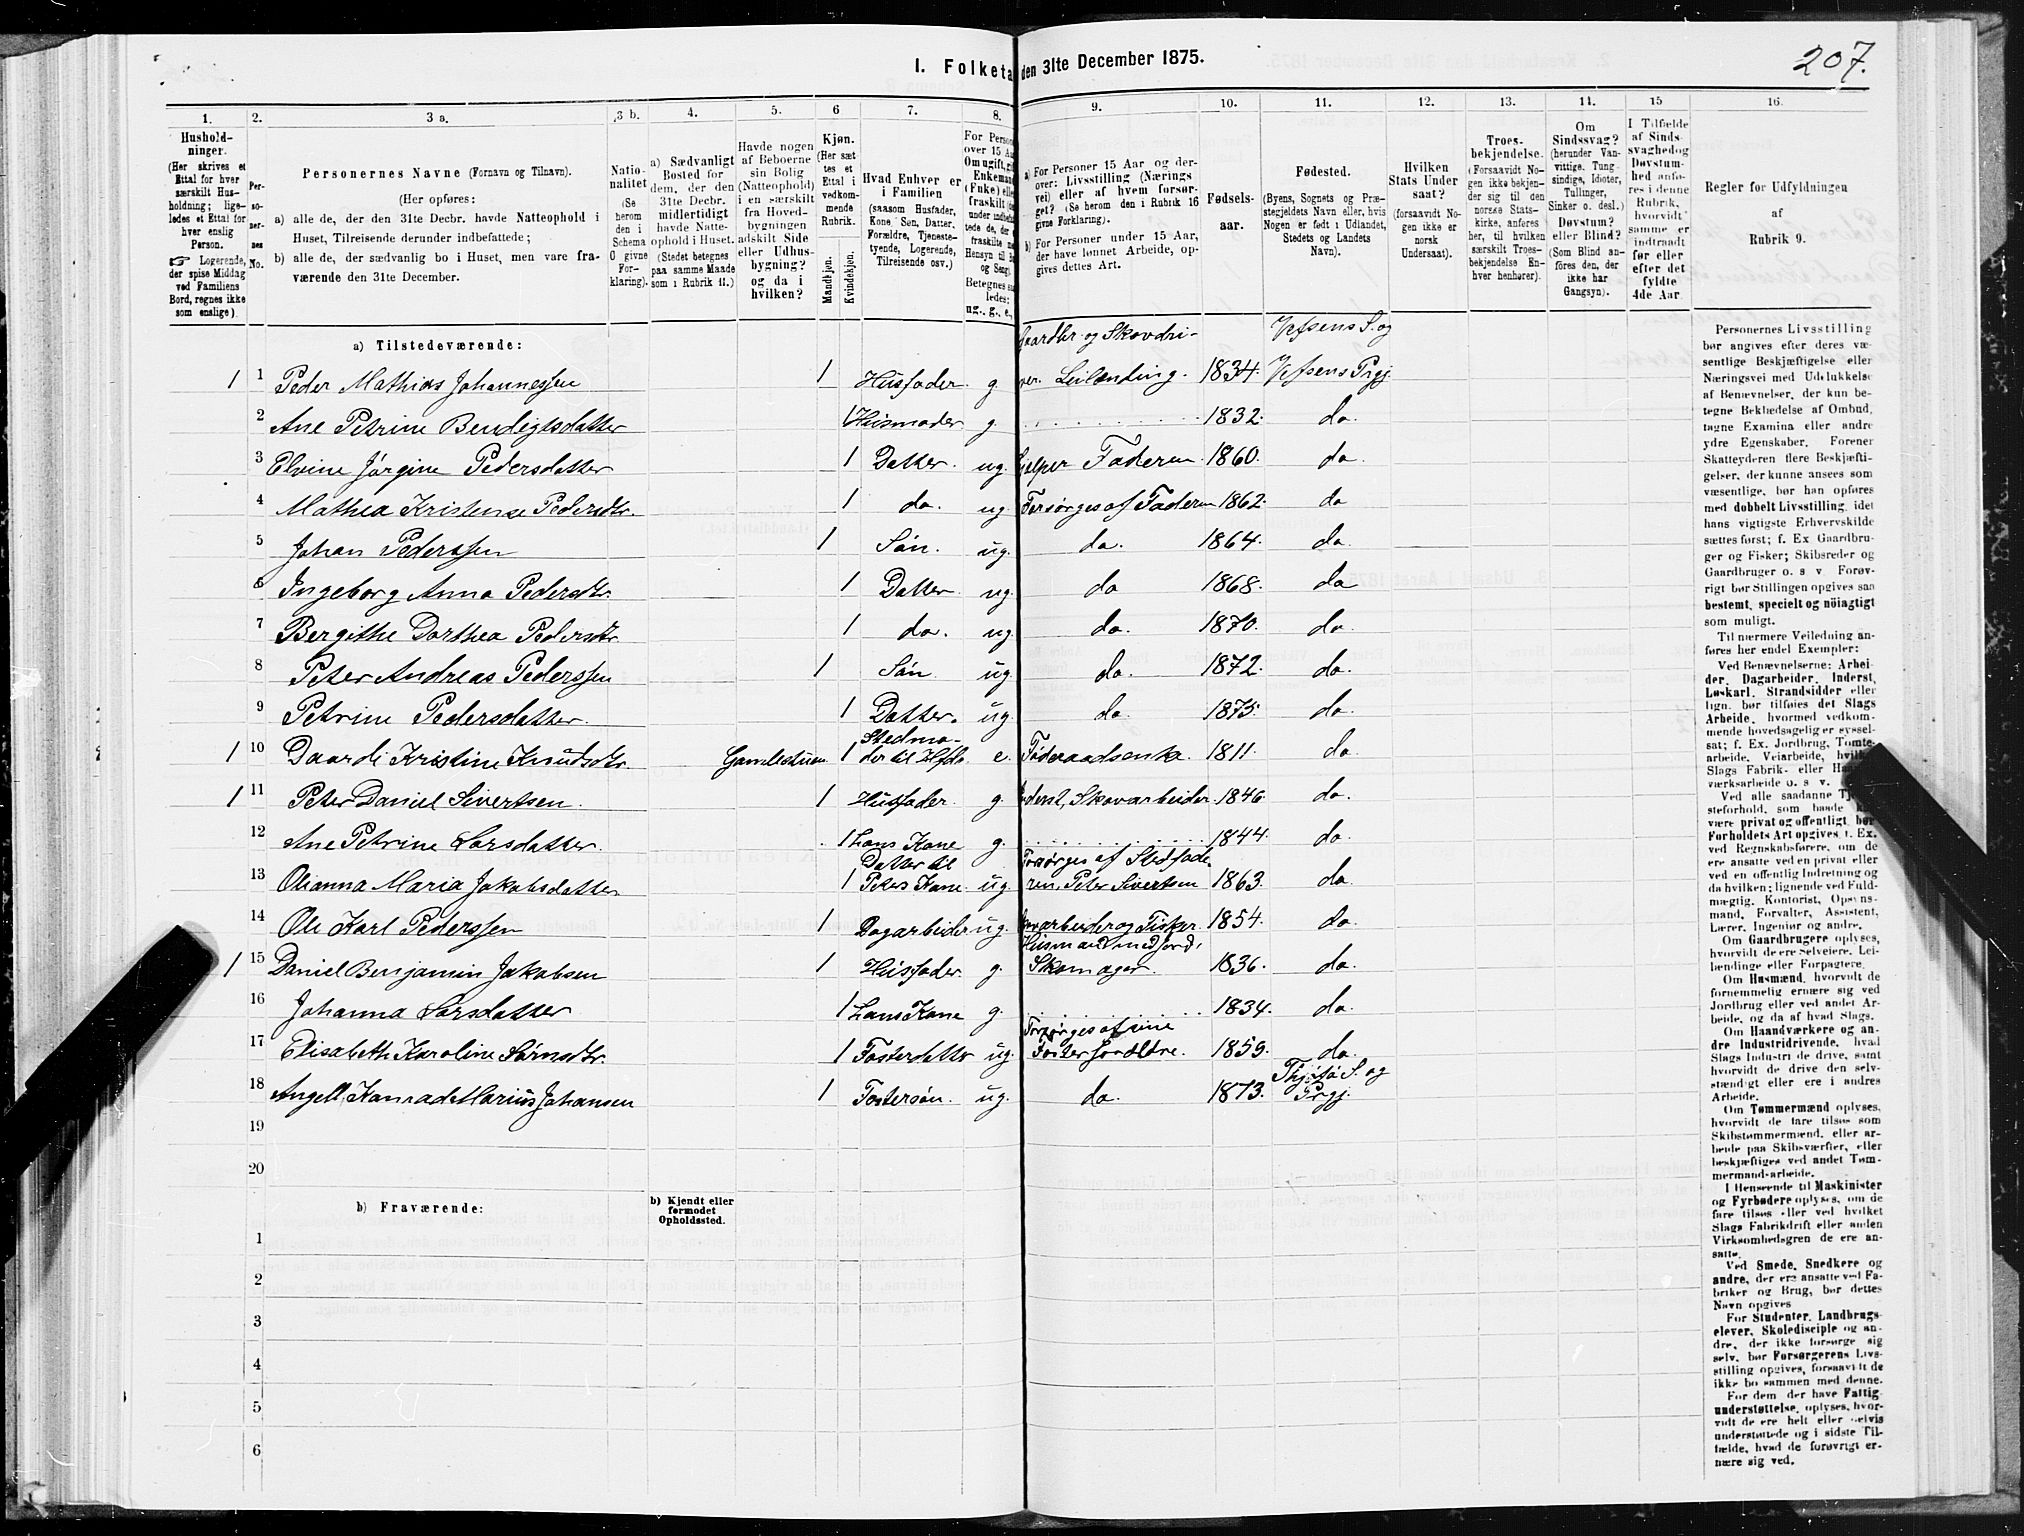 207.
I. Folketa den 31te December 1875.
1. 2. 3 a. 3 b. 4. 5. 6 7. 8. 9. 10. 11. 12. 13. 14. 15 16.
Hushold-
ninger.
(Her skrives et
Ettal for hver
særskilt Hus-
holdning; lige-
ledes et Ettal for
hver enslig
Person.
☞ Logerende,
der spise Middag
ved Familiens
Bord, regnes ikke
som enslige).
Per-
so-
ner-
nes
No.
Personernes Navne (Fornavn og Tilnavn).
(Her opføres:
a) alle de, der den 31te Decbr. havde Natteophold i
Huset, Tilreisende derunder indbefattede;
b) alle de, der sædvanlig bo i Huset, men vare fra-
værende den 31te December.
Natio-
nalitet
(Se
herom
den i
Schema
O givne
For-
klaring).
a) Sædvanligt
Bosted for
dem, der den
31te Decbr.
midlertidigt
havde Natte-
ophold i Huset.
(Stedet betegnes
paa samme Maade
som i Rubrik 11.)
Havde nogen
af Beboerne
sin Bolig
(Natteophold)
i en særskilt
fra Hoved-
bygningen
adskilt Side
eller Udhus-
bygning?
og da i
hvilken?
Kjøn.
(Her sæt-
tes et
Ettal i
vedkom-
mende
Rubrik.
Mandkjøn.
Kvindekjøn.
Hvad Enhver er
i Familien
(saasom Husfader,
Kone, Søn, Datter,
Forældre, Tjeneste-
tyende, Logerende,
Tilreisende osv.)
For Person
over 15 Aa
Om ugift, gi
Enkemand
(Enke) ell
fraskilt
a) For Personer 15 Aar og der-
over: Livsstilling (Nærings
vei) eller af hvem forsør-
get? (Se herom den i Rubrik 16
givne Forklaring).
b) For Personer under 15 Aar,
der have lønnet Arbeide, op-
gives dettes Art.
Fødsels-
aar.
Fødested.
(Byens, Sognets og Præ-
stegjeldets Navn eller, hvis
Nogen er født i Udlandet,
Stedets og Landets
Navn).
Hvilken
Stats Under
saat?
(forsaavidt No-
gen ikke er
norsk
Undersaat).
Troes-
bekjendelse.
(Forsaavidt No-
gen ikke bekjen-
der sig til den
norske Stats-
kirke, anføres
her, til hvilken
særskilt Troes-
bekjendelse En-
hver henhører).
Om
Sindssvag?
(herunder Van-
vittige, Tung-
sindige, Idioter,
Tullinger,
Sinker o. desl.)
Døvstum?
eller Blind?
(Som Blind an-
føres den, der
ikke har
Gangsyn).
I Tilfælde
af Sinds-
svaghed og
Døvstum-
hed anfø-
res i denne
Rubrik,
hvorvidt
samme er
indtraadt
før eller
efter det
fyldte
4de Aar.
Regler for Udfyldningen
af
Rubrik 9.
a) Tilstedeværende:
Gaardbr. og Skovdri- Vefsens S. og
1 1 Peder Mathias Johannessen 1 Husfader g. ver. Leilænding. 1834. Vefsens Prgj.
2 Ane Petrine Bendigtsdatter 1 Husmoder g. 1832. do.
3 Elvine Jørgine Pedersdatter 1 Datter. ug. hjelper Faderen 1860. do.
4 Mathea Kristense Pedersdtr. 1 do. ug. Forsørges af Faderen 1862. do
5 Johan Pederssen 1 Søn. ug. do. 1864. do.
6 Ingeborg Anna Pedersdtr. 1 Datter ug. do 1868. do
7 Bergithe Dorthea Pedersdtr 1 do. ug. do. 1870. do.
8 Peter Andreas Pederssen 1 Søn. ug. do. 1872. do.
9 Petrine Pedersdatter. 1 Datter. ug. do. 1875. do.
Stedmo-
1 10 Daardi Kristine Knudsdtr. Gamlestuen 1 der til Hfdr. e. Føderaadsenke 1811. do.
1 11 Peter Daniel Sivertsen. 1 Husfader. g. Inderst, Skovarbeider. 1846. do.
12 Ane Petrine Larsdatter. 1 Hans Kone g. 1844. do.
Datter til Forsørges af Stedfade-
13 Olianna Maria Jakobsdatter 1 Peters Kone. ug. ren. Peter Sivertsen 1863. do.
14 Ole Karl Pederssen 1 Dagarbeider ug. arbeider og Fisker. 1854. do.
Husmand med Jord,
1 15 Daniel Benjamin Jakobsen 1 Husfader. g. Skomager. 1836. do.
16 Johanna Larsdatter 1 Hans Kone g. 1834. do.
Forsørges af sine
17 Elisabeth Karoline Sørnsdtr. 1 Fosterdatter ug. Fosterforældre. 1859. do.
Thjøtø S. og
18 Angell Konrad Marius Johansen 1 Fostersøn. ug. do. 1873. Prgj.
19
20
b) Fraværende:
b) Kjendt eller
formodet
Opholdssted.
1
2
3
4
5
6
Personernes Livsstilling
bør angives efter deres væ-
sentlige Beskjæftigelse eller
Næringsvei med Udelukkelse
af Benævnelser, der kun be-
tegne Beklædelse af Ombud,
tagne Examina eller andre
ydre Egenskaber. Forener
Skatteyderen flere Beskjæfti-
gelser, der kunne ansees som
væsentlige, bør han opføres
med dobbelt Livsstilling, idet
hans vigtigste Erhvervskilde
sættes først; f. Ex Gaardbru-
ger og Fisker; Skibsreder og
Gaardbruger o. s v. Forøv-
rigt bør Stillingen opgives saa
bestemt, specielt og nøiagtigt
som muligt.
Til nærmere Veiledning an-
føres her endel Exempler:
Ved Benævnelserne: Arbei-
der, Dagarbeider, Inderst,
Løskarl, Strandsidder eller
lign. bør tilføies det Slags
Arbeide, hvormed vedkom-
mende hovedsagelig er syssel-
sat; f. Ex. Jordbrug, Tomte-
arbeide, Veiarbeide, hvilket
Slags Fabrik- eller
værksarbeide o. s. v.
Ved alle saadanne
steforhold, som baade
være privat og offentligt, bør
Forholdets Art opgives, t. Ex.
ved Regnskabsførere, om de
ere ansatte ved en privat eller
ved en offentlig Indretning og
da hvilken; lignende ved Fuld-
mægtig, Kontorist, Opsyns-
mand, Forvalter, Assistent,
Lærer, Ingeniør og andre.
Om Gaardbrugere oplyses,
hvorvidt de ere Selveiere, Lei-
lændinge eller Forpagtere.
Om Husmænd, hvorvidt de
fornemmelig ernære sig ved
Jordbrug eller ved andet Ar-
beide, og da af hvad Slags.
Om Haandværkere og an-
dre Industridrivende, hvad
Slags Industri de drive, samt
hvorvidt de drive den selv-
stændigt eller ere i andres
Arbeide.
Om Tømmermænd oplyses,
hvorvidt de fare tilsøs som
Skibstømmermænd, eller ar-
beide paa Skibsværfter, eller
beskjæftiges ved andet Tøm-
mermandsarbeide.
I Henseende til Maskinister
og Fyrbødere oplyses, om de
fare tilsøs eller ved hvilket
Slags Fabrikdrift eller anden
Virksomhedsgren de ere an-
satte.
Ved Smede, Snedkere og
andre, der ere ansatte ved Fa-
briker og Brug, bør dettes
Navn opgives
For Studenter, Landbrugs-
elever, Skoledisciple og an-
dre, der ikke forsørge sig
selv, bør Forsørgerens Livs-
stilling opgives, forsaavidt de
ikke bo sammen med denne.
For dem, der have Fattig-
understøttelse, oplyses, hvor-
vidt de ere helt eller delvis
understøttede og i sidste Til-
fælde, hvad de forøvrigt er-
nære sig ved.